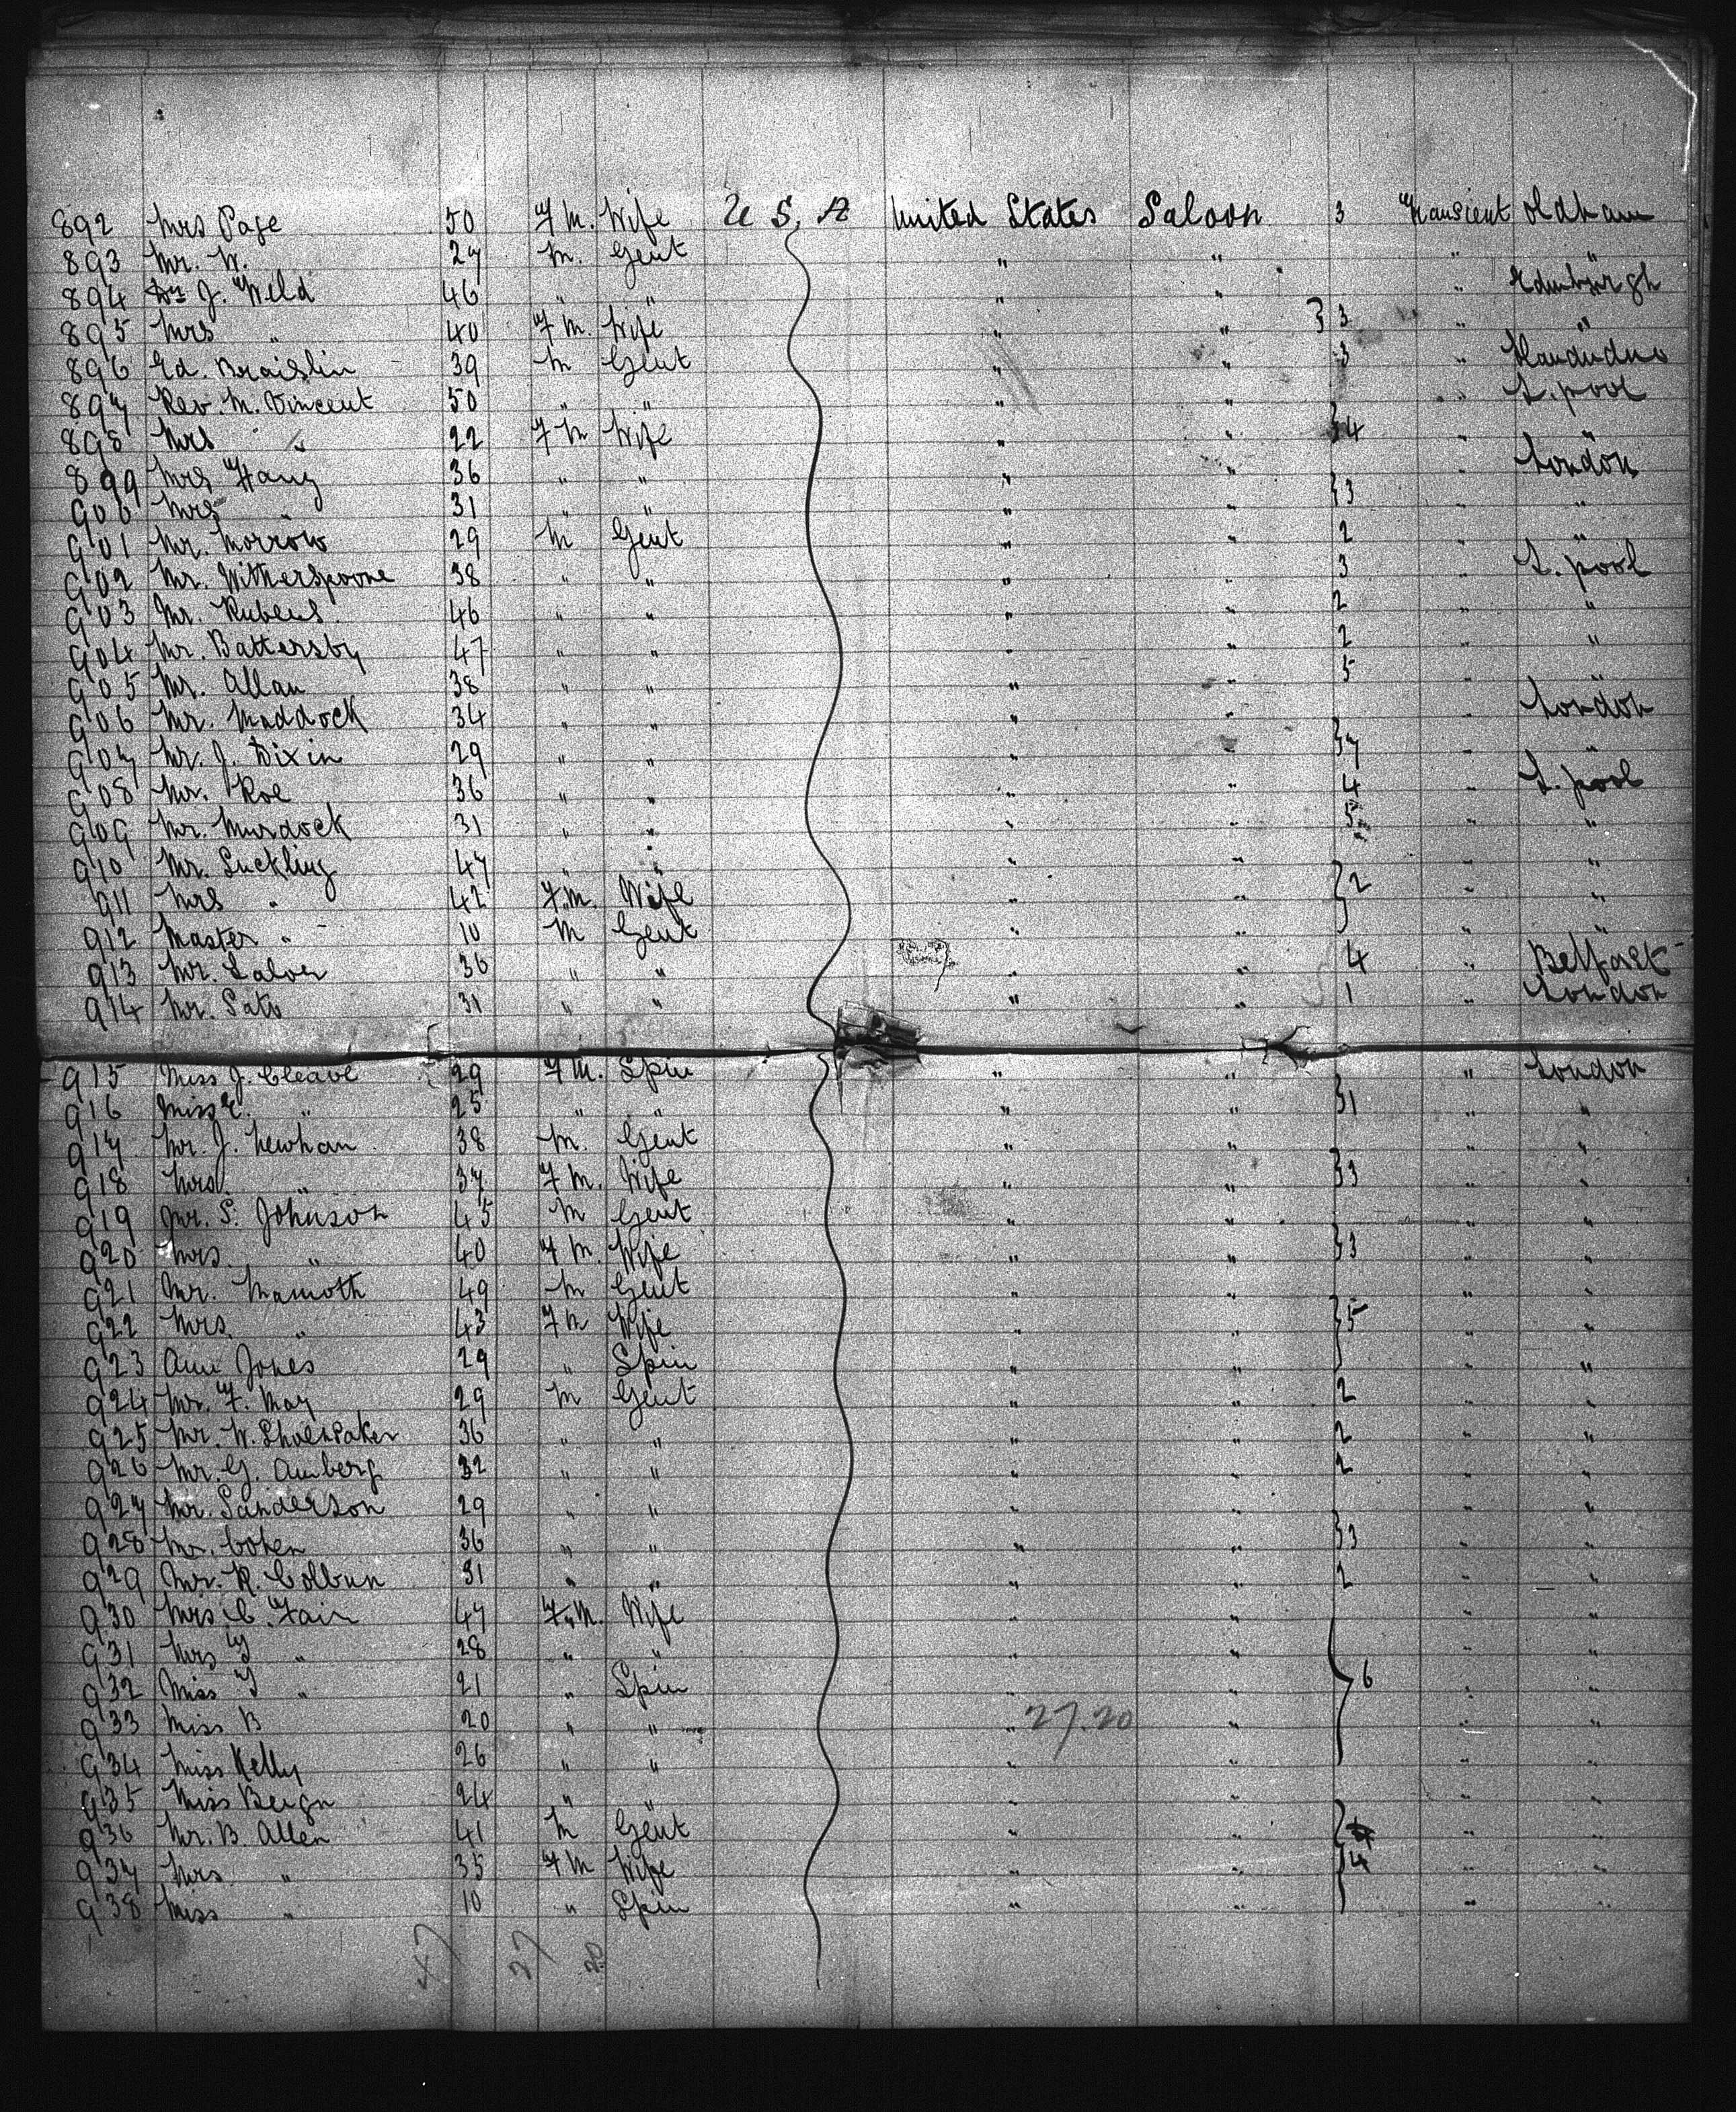 892 Mrs Page 50 F M. Wife U S, A United States Saloon 3 Transient Oldham
893 Mr. W. 27 M. Gent " " " "
894 J. Weld 46 " " " " " Edinburgh
895 Mrs " 40 F M. Wife " " } 3 " "
896 Ed. Braislin 39 M Gent " " 3 " Llandudno
897 Rev. M. Vincent 50 " " " " " L. pool
898 Mrs " 22 F M Wife " " } 4 " "
899 Mrs Haug 36 " " " " " London
900 Mrs " 31 " " " " } 3 " "
901 Mr. Morrow 29 M Gent " " 2 " "
902 Mr. Witherspoone 38 " " " " 3 " L. pool
903 Mr. Rubens. 46 " " " " 2 " "
904 Mr. Battersby 47 " " " " 2 " "
905 Mr. Allan 38 " " " " 5 " "
906 Mr. Maddock 34 " " " " " London
907 Mr. J. Dixin 29 " " " " } 7 " "
908 Mr. Roe 36 " " " " 4 " L. pool
909 Mr. Murdock 31 " " " " 5 " "
910 Mr. Suckling 47 " " " " " "
911 Mrs " 42 F.M. Wife " " } 2 " "
912 Master " 10 M Gent " " " "
913 Mr. Salver 36 " " " " 4 " Belfast
914 Mr. Sato 31 " " " " 1 " London
915 Miss J. Cleave 29 F M. Spin " " " London
916 Miss E. " 25 " " " " } 1 " "
917 Mr. J. Newhan 38 M. Gent " " " "
918 Mrs. " 37 F M. Wife " " } 3 " "
919 Mr. S. Johnson 45 M Gent " " " "
920 Mrs. " 40 F M. Wife " " } 3 " "
921 Mr. Mamoth 49 M Gent " " " "
922 Mrs. " 43 F M Wife " " } 5 " "
923 Ann Jones 29 " Spin " " " "
924 Mr. F. May 29 M Gent " " 2 " "
925 Mr. W. Shoenaker 36 " " " " 2 " "
926 Mr. G. Amberg 32 " " " " 2 " "
927 Mr. Sanderson 29 " " " " " "
928 Mr. Cohen 36 " " " " } 3 " "
929 Mr. R. Colbun 31 " " " " 2 " "
930 Mrs C. Fain 47 F.M. Wife " " " "
931 Mrs G " 28 " " " " " "
932 Miss J " 21 " Spin " " } 6 " "
933 Miss B 20 " " " 27.20 " " "
934 Miss Kelly 26 " " " " " "
935 Miss Beign 24 " " " " " "
936 Mr. B. Allen 41 M Gent " " } " "
937 Mrs. " 35 F M Wife " " 4 " "
938 Miss " 10 " Spin " " " "
47 27 20